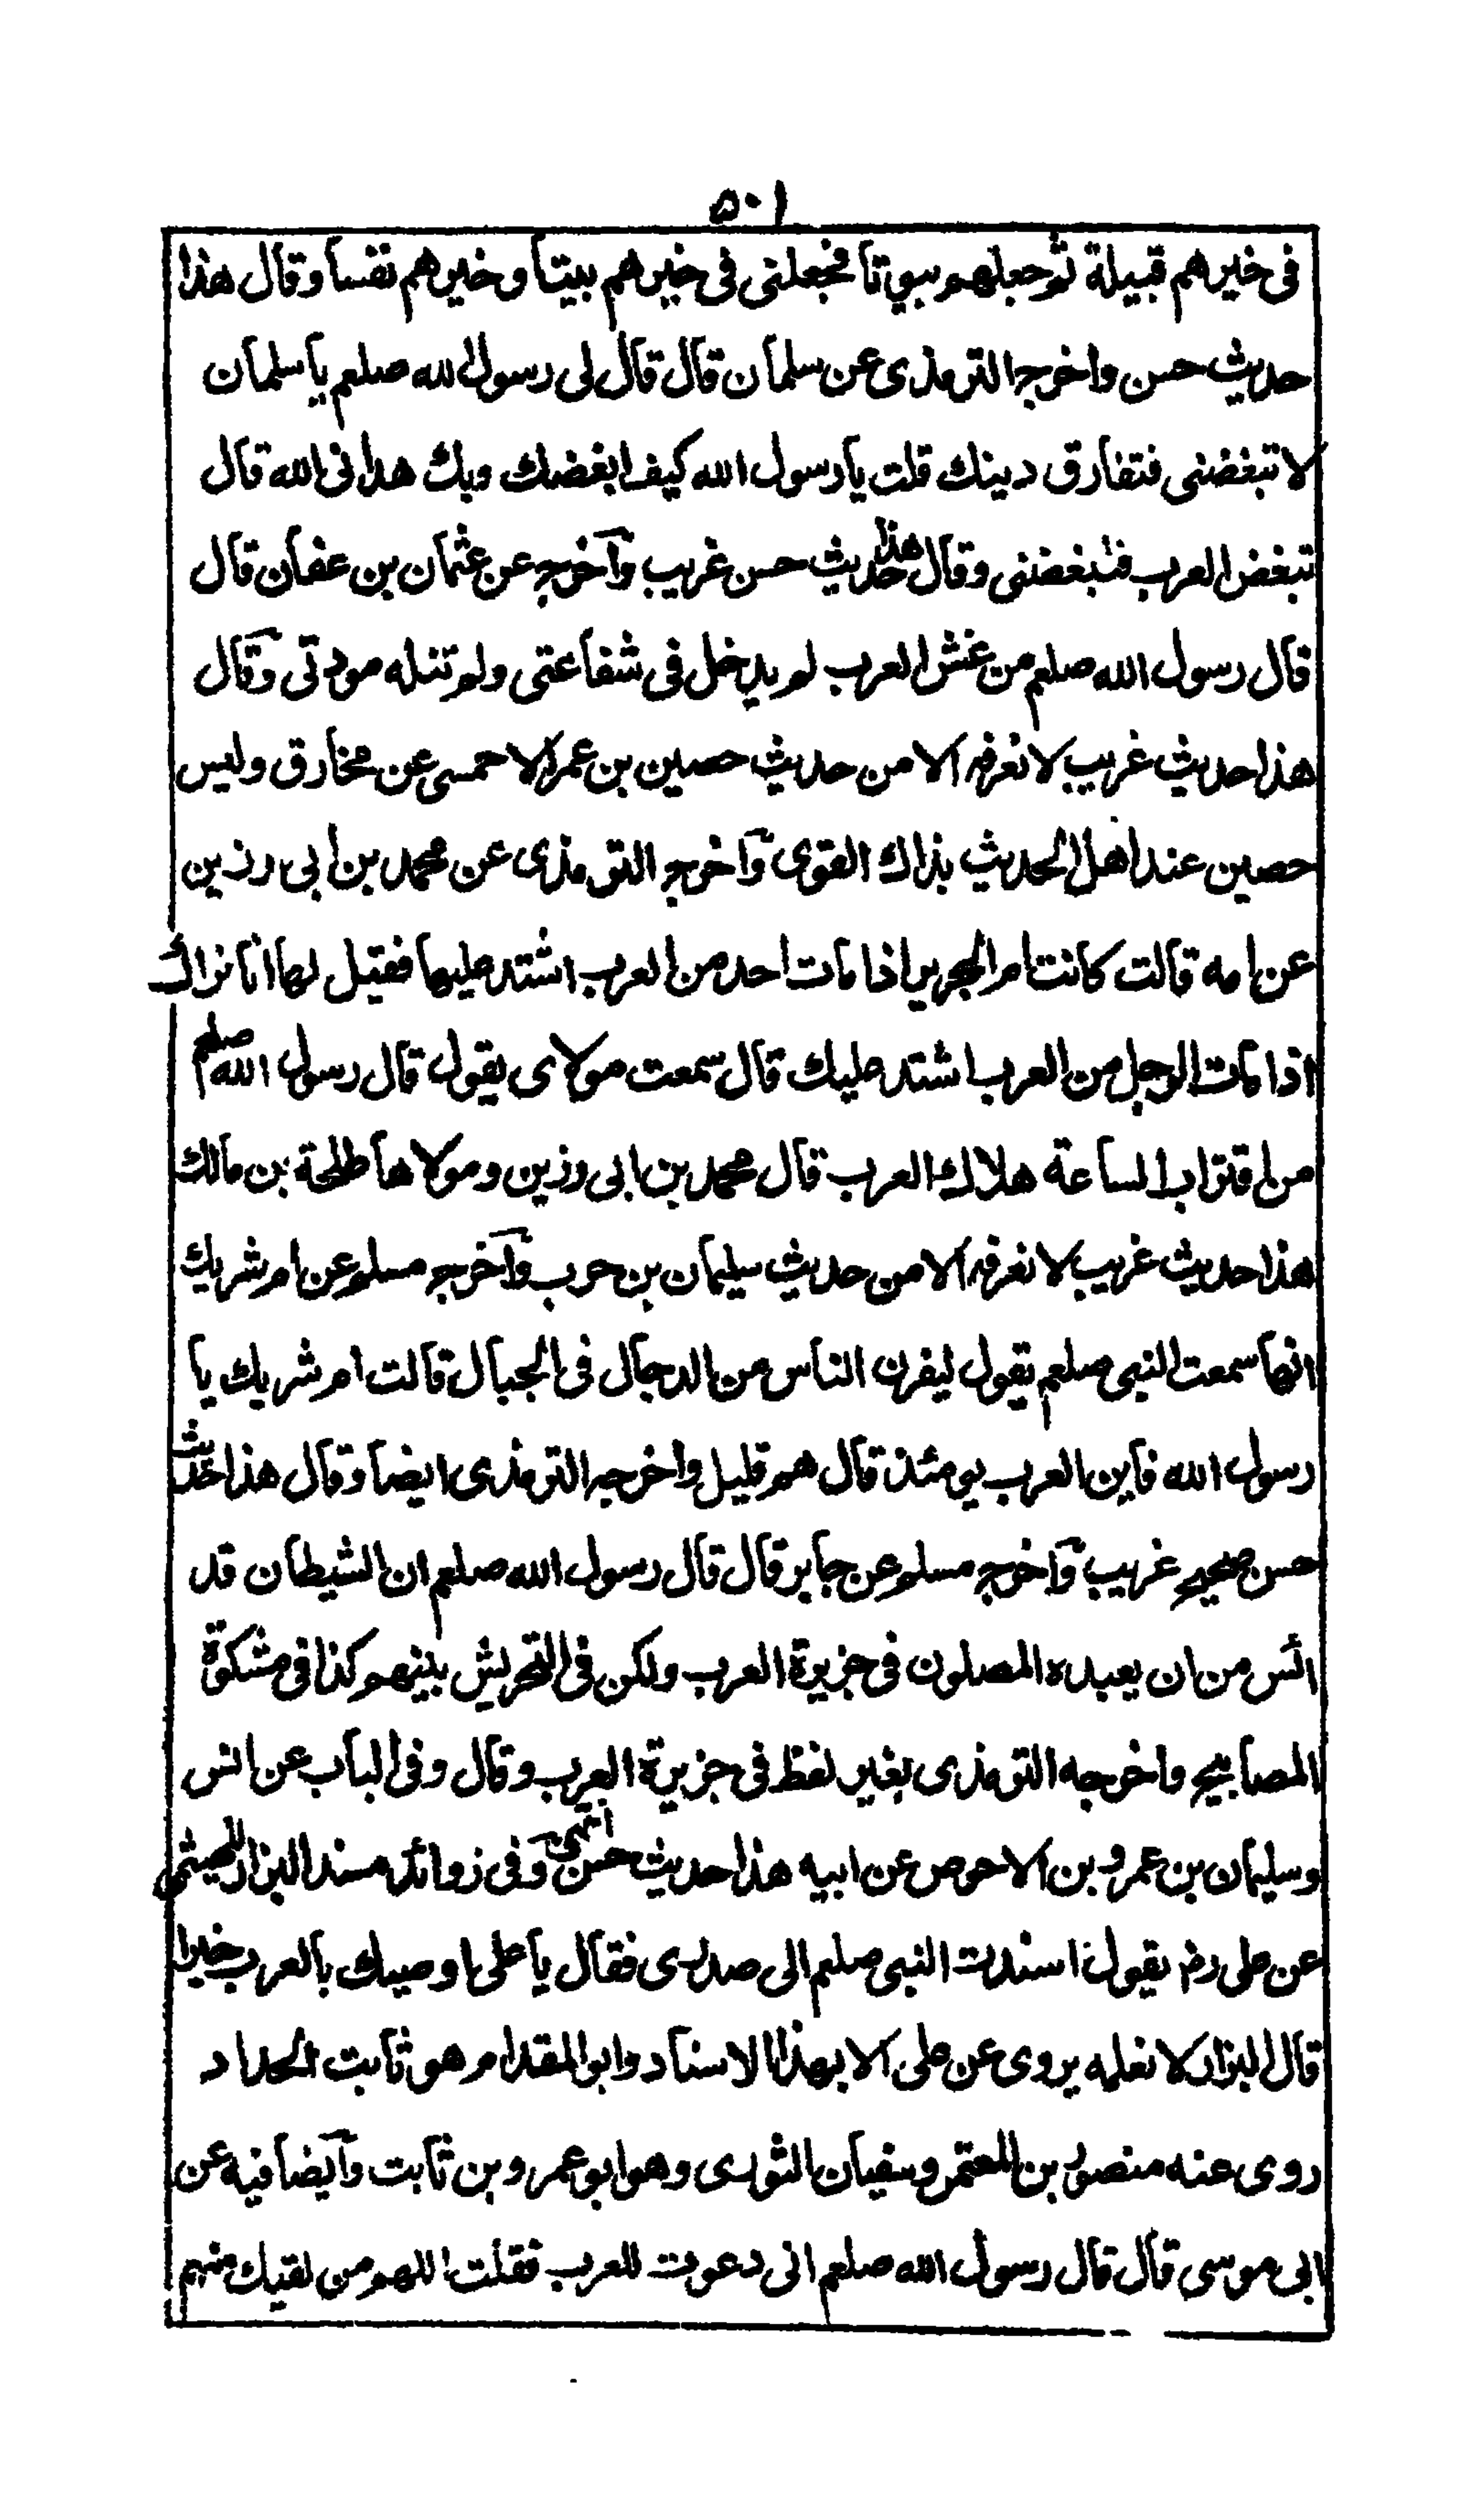 ۵۰۱
فى خيرهم قبيلة ثم جعلهم بيوتا فجعلنى فى خيرهم بيتا وخيرهم نفسا وقال هذا
حديث حسن واخرج الترمذى عن سلمان قال قال لى رسول الله صلعم يا سلمان
لا تبغضنى فتفارق دينك قلت يا رسول الله كيف ابغضك وبك هدانى الله قال
تبغض العرب فتبغضنى وقال هذا حديث حسن غريب وآخرج عن عثمان بن عفان قال
قال رسول الله صلعم من غش العرب لم يدخل فى شفاعتى ولم تنله مودتى وقال
هذا حديث غريب لا نعرفه الا من حديث حصين بن عمر الاحمسى عن مخارق وليس
حصين عند اهل الحديث بذاك القوى وآخرج الترمذى عن محمد بن ابى رزين
عن امه قالت كانت ام الحرير اذا مات احد من العرب اشتد عليها فقيل لها انا نراك
اذا مات الرجل من العرب اشتد عليك قال سمعت مولاى يقول قال رسول الله صلعم
من اقتراب الساعة هلاك العرب قال محمد بن ابى رزين ومولاها طلحة بن مالك
هذا حديث غريب لا نعرفه الا من حديث سليمان بن حرب وآخرج مسلم عن ام شريك
انها سمعت النبى صلعم يقول ليفرن الناس من الدجال فى الجبال قالت ام شريك يا
رسول الله فاين العرب يومئذ قال هم قليل واخرجه الترمذى ايضا وقال هذا حديث
حسن صحيح غريب وآخرج مسلم عن جابر قال قال رسول الله صلعم ان الشيطان قد
ائس من ان يعبده المصلون فى جزيرة العرب ولكن فى التحريش بينهم كذا فى مشكوة
المصابيح واخرجه الترمذى بغير لفظ فى جزيرة العرب وقال وفى الباب عن انس
وسليمان بن عمرو بن الاحوص عن ابيه هذا حديث حسن انتهى وفى زوائد مسند البزار للهيثمى
عن على رض يقول اسندت النبى صلعم الى صدرى فقال يا على اوصيك بالعرب خيرا
قال البزار لا نعلمه يروى عن على الا بهذا الاسناد وابو المقدام هو ثابت الحداد
روى عنه منصور بن المعتمر وسفيان الثورى وهو ابو عمرو بن ثابت وآيضا فيه عن
ابى موسى قال قال رسول الله صلعم انى دعوت للعرب فقلت اللهم من لقيك منهم